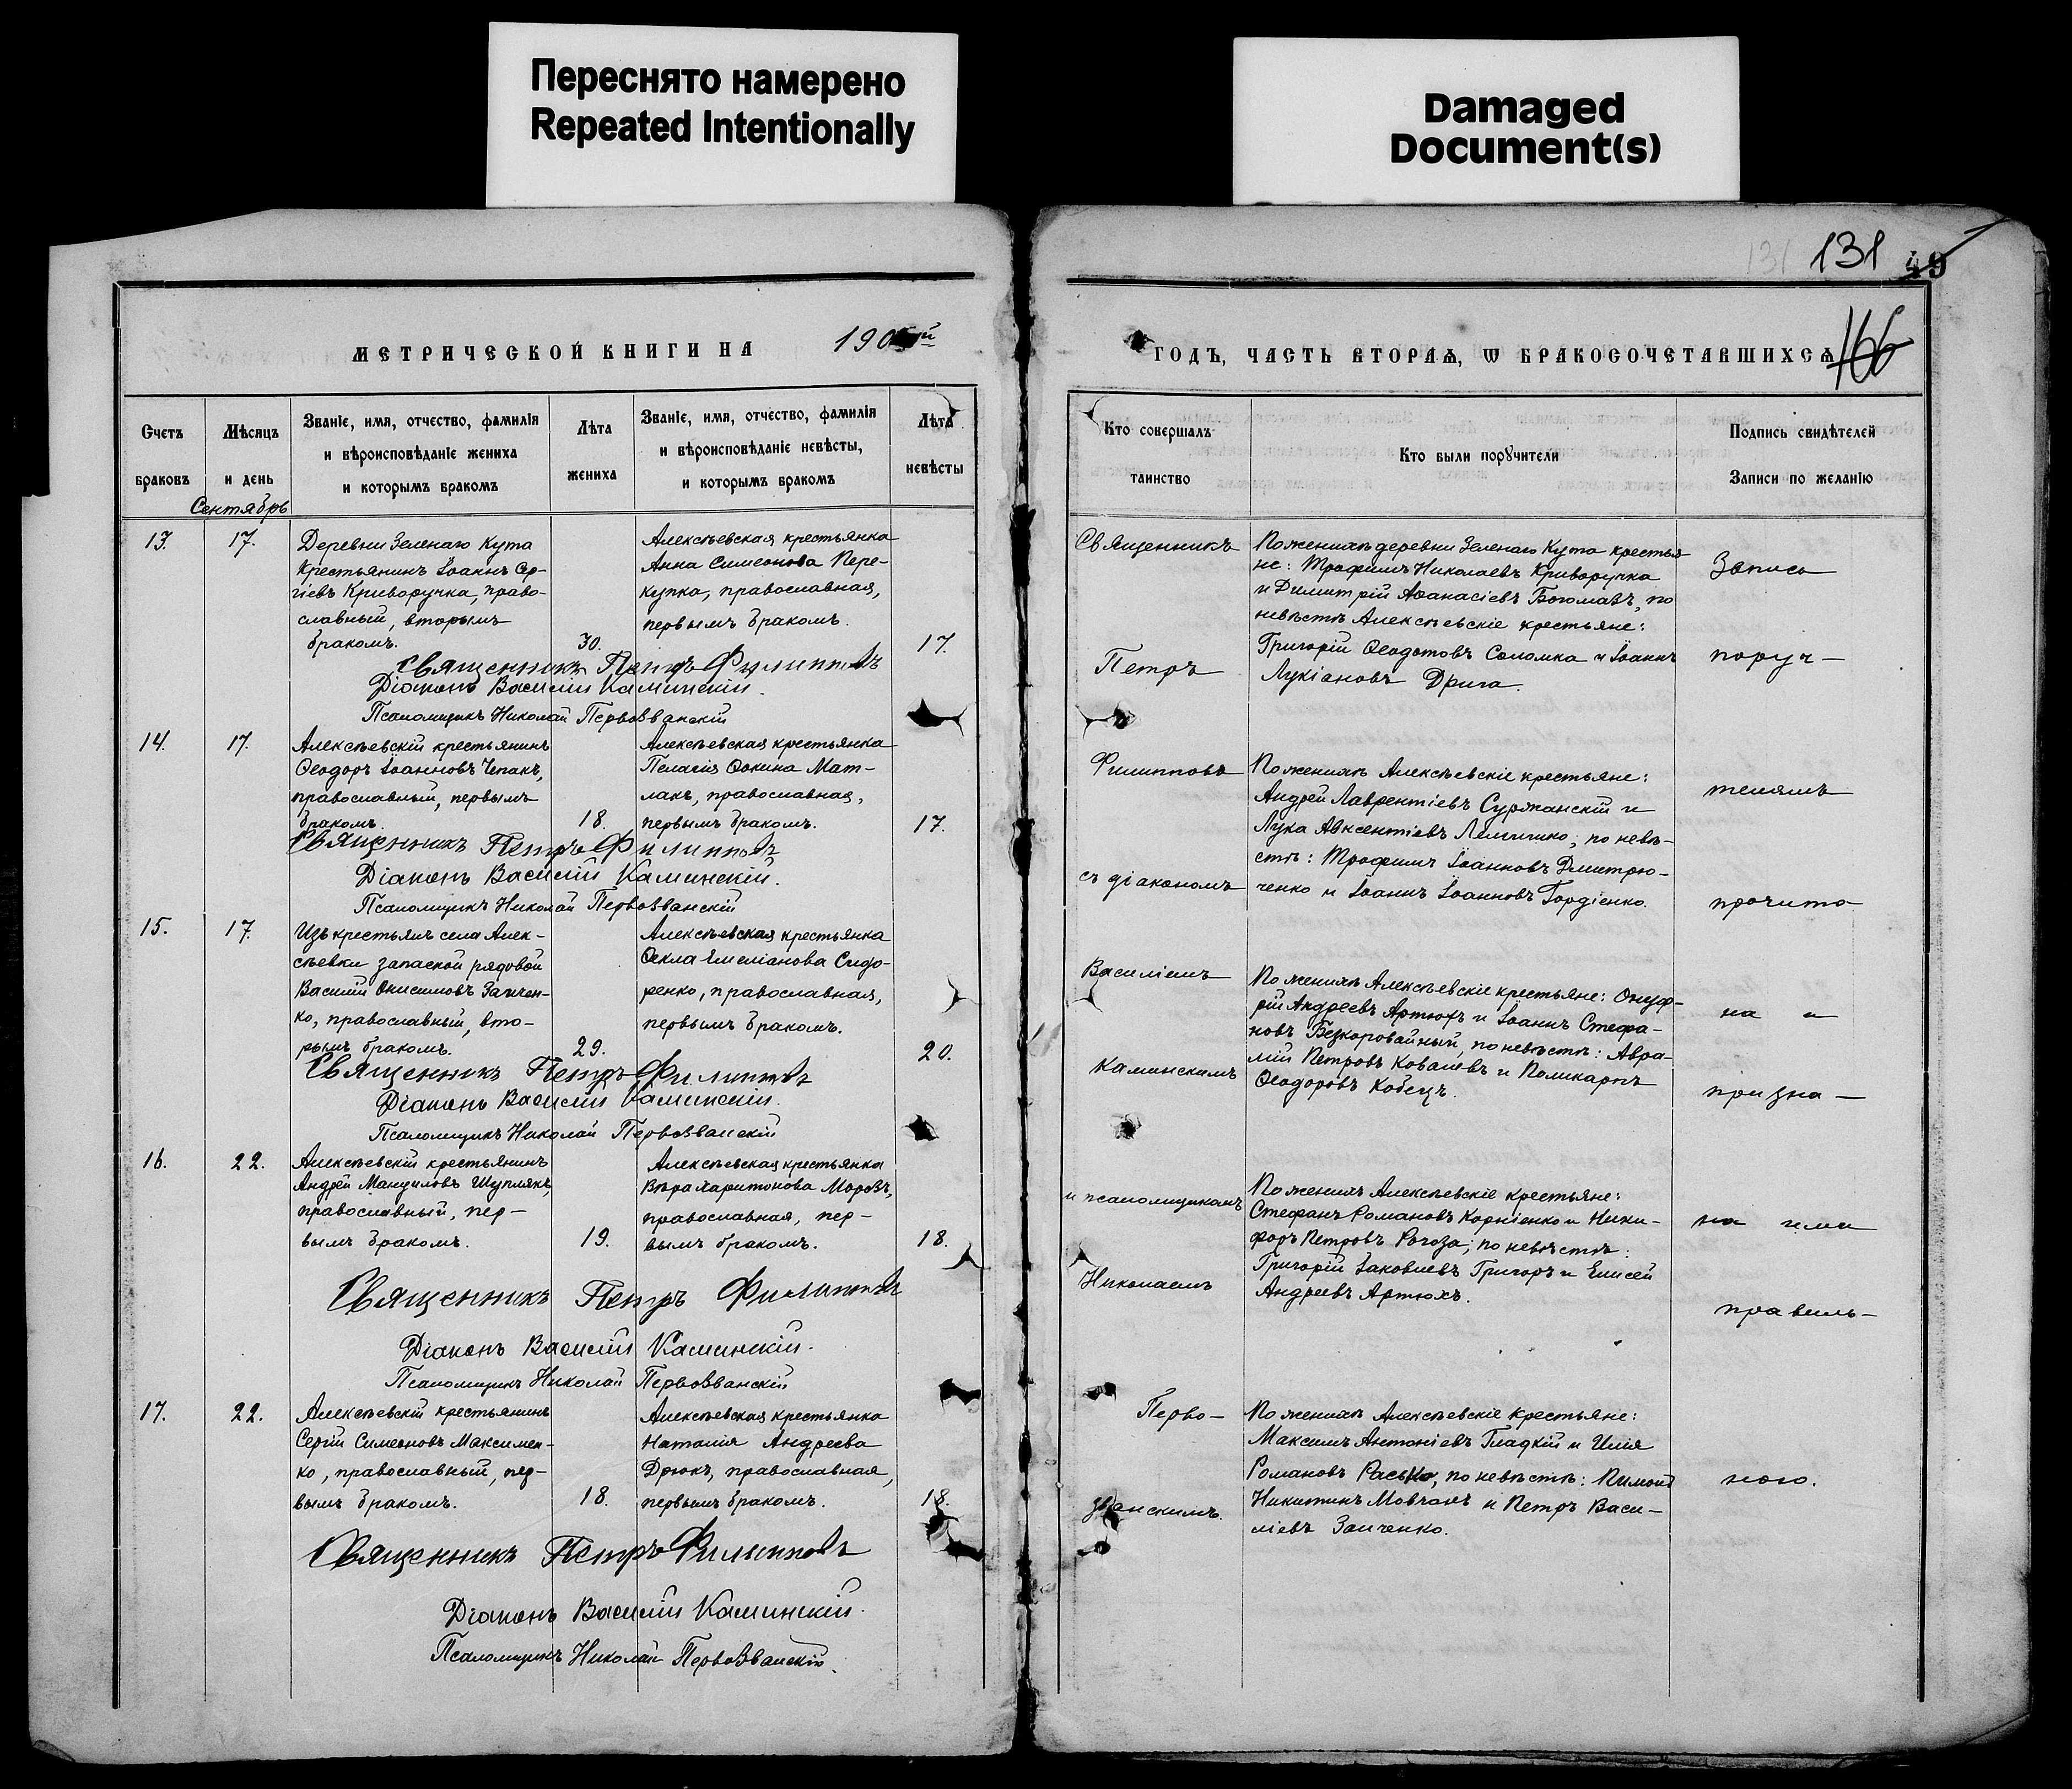 Переснято намерено
Repeated Intentionally
Damaged
Document(s)
131 131 49
МЕТРИЧЕСКОЙ КНИГИ НА 190
ГОДЪ, ЧАСТЬ ВТОРАѦ, Ѡ БРАКОСОЧЕТАВШИХСѦ
166
Счетъ браковъ
Мѣсяцъ и день
Званіе, имя, отчество, фамилія
и вѣроисповѣданіе жениха
и которымъ бракомъ
Лѣта жениха
Званіе, имя, отчество, фамилія
и вѣроисповѣданіе невѣсты,
и которымъ бракомъ
Лѣта невѣсты
Кто совершалъ таинство
Кто были порꙋчители
Подпись свидѣтелей
Записи по желанію
Сентябрь
13. 17.
Деревни Зеленаго Кута
крестьянинъ Іоаннъ Сер-
гіевъ Криворучка, право-
славный, вторымъ
бракомъ.
30.
Алексѣевская крестьянка
Анна Симеонова Пере-
купка, православная,
первымъ бракомъ.
17.
Священникъ Петръ Филипповъ
Діаконъ Василій Каминскій.
Псаломщикъ Николай Первозванскій
14. 17.
Алексѣевскій крестьянинъ
Ѳеодоръ Іоанновъ Чепакъ,
православный, первымъ
бракомъ.
18.
Алексѣевская крестьянка
Пелагія Ѳокина Мат-
лакъ, православная,
первымъ бракомъ.
17.
Священникъ Петръ Филипповъ
Діаконъ Василій Каминскій.
Псаломщикъ Николай Первозванскій
15. 17.
Изъ крестьянъ села Алек-
сѣевки запасной рядовой
Василій Онисимовъ Заичен-
ко, православный, вто-
рымъ бракомъ.
29.
Алексѣевская крестьянка
Ѳекла Емеліанова Сидо-
ренко, православная,
первымъ бракомъ.
20.
Священникъ Петръ Филипповъ
Діаконъ Василій Каминскій.
Псаломщикъ Николай Первозванскій
16. 22.
Алексѣевскій крестьянинъ
Андрей Мануиловъ Шуплякъ,
православный, пер-
вымъ бракомъ.
19.
Алексѣевская крестьянка
Вѣра Харитонова Морозъ,
православная, пер-
вымъ бракомъ.
18.
Священникъ Петръ Филипповъ
Діаконъ Василій Каминскій.
Псаломщикъ Николай Первозванскій
17. 22.
Алексѣевскій крестьянинъ
Сергій Симеоновъ Максимен-
ко, православный, пер-
вымъ бракомъ.
18.
Алексѣевская крестьянка
Наталія Андреева
Дрюкъ, православная,
первымъ бракомъ.
18.
Священникъ Петръ Филипповъ
Діаконъ Василій Каминскій.
Псаломщикъ Николай Первозванскій.
Священникъ
Петръ
Филипповъ
съ діакономъ
Василіемъ
Каминскимъ
и псаломщикомъ
Николаемъ
Перво-
званскимъ.
По женихѣ деревни Зеленаго Кута крестья-
не: Трофимъ Николаевъ Криворучка
и Димитрій Аѳанасіевъ Богомазъ, по
невѣстѣ Алексѣевскіе крестьяне:
Григорій Ѳеодотовъ Соломка и Іоаннъ
Лукіановъ Дрига.
По женихѣ Алексѣевскіе крестьяне:
Андрей Лаврентіевъ Суржанскій и
Лука Авксентіевъ Лемишко, по невѣ-
стѣ: Трофимъ Іоанновъ Дмитрю-
ченко и Іоаннъ Іоанновъ Гордіенко.
По женихѣ Алексѣевскіе крестьяне: Онуф-
рій Андреевъ Артюхъ и Іоаннъ Стефа-
новъ Безкоровайный, по невѣстѣ: Авра-
мій Петровъ Ковалевъ и Поликарпъ
Ѳеодоровъ Кобецъ.
По женихѣ Алексѣевскіе крестьяне:
Стефанъ Романовъ Корніенко и Ники-
форъ Петровъ Рогоза; по невѣстѣ:
Григорій Іаковлевъ Григоръ и Елисей
Андреевъ Артюхъ.
По женихѣ Алексѣевскіе крестьяне:
Максимъ Антоніевъ Гладкій и Илія
Романовъ Расько, по невѣстѣ: Пимонъ
Никитинъ Мовчанъ и Петръ Васи-
ліевъ Заиченко.
Запись
поруч-
телямъ
прочита-
на и
призна-
на ими
правиль-
ного.